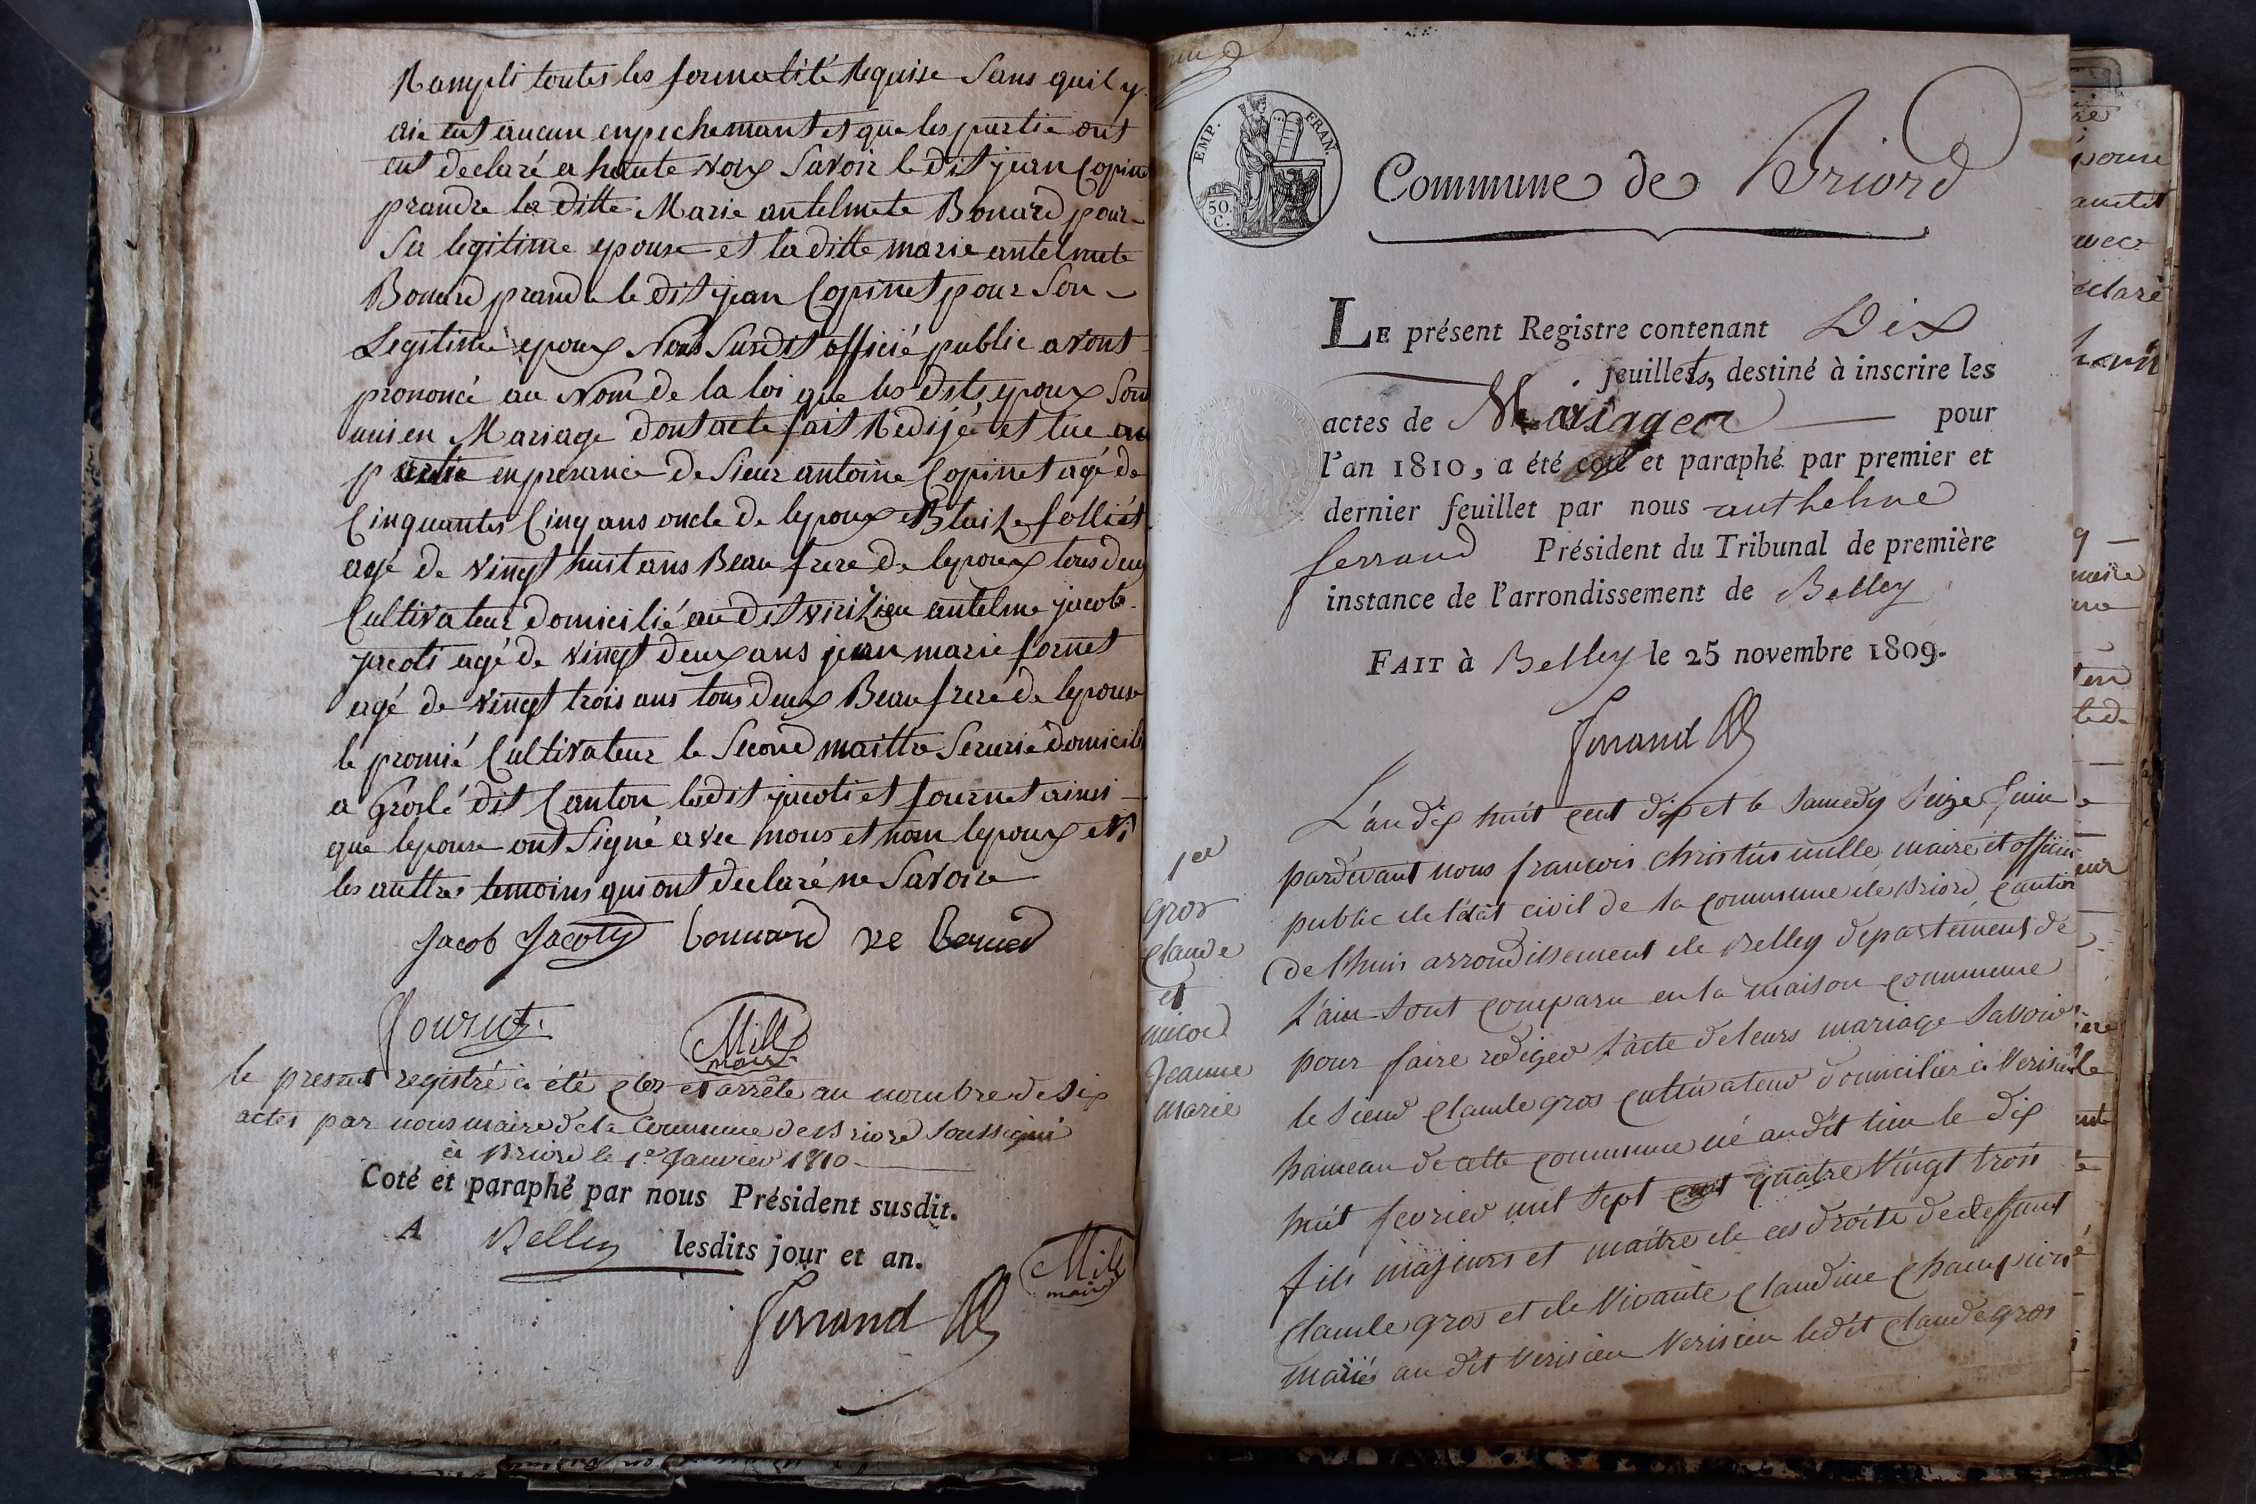 Rampli toutes les formalité Requise Sans quil y
aie eut aucun enpechemant et que les partie ont
eut declaré a haute voix Savoir le dit jean Copinet
prandre la ditte Marie antelmete Bonard pour
Sa legitime epouse et la ditte marie antelmete
Bonard prandre le dit jean Copinet pour Son
Legitime epoux Nous Susdit officié public avont
prononcé au Nom de la loi que les dits epoux Sont
uni en Mariage dont acte fait Redijé et lue au
partie en presance de Sieur antoine Copinet agé de
Cinquantes Cinq ans oncle de lepoux et Blaize folliet
agé de vingt huit ans Beau frere de lepoux tous deux
Cultivateur domicilié au dit virizieu antelme jacob
jacoti agé de vingt deux ans jean marie fornet
agé de vingt trois ans tous deux Beau frere de lepouse
le promié Cultivateur le Second maittre Serurié domicilié
a Groslé dit Canton ledit jacoti et fournet ainsi
que lepouse ont Signé avec nous et nom lepoux et
les auttres temoins qui ont declaré ne Savoire
Jacob Jacoty bonnard
fournet
Mille
maire
le present registré à été clos et arrêté au nombre de six
actes par nous maire de la Commune de Briord Soussigné
à Briord le 1er Janvier 1810
Coté et paraphé par nous Président susdit.
A Belley lesdits jour et an.
Ferrand
Mille
maire
EMP. FRAN.
50.
C.
Commune de Briord
LE présent Registre contenant Dix
feuillets, destiné à inscrire les
actes de Mariages pour
l'an 1810, a été coté et paraphé par premier et
dernier feuillet par nous anthelme
ferrand Président du Tribunal de première
instance de l'arrondissement de Belley
FAIT à Belley le 25 novembre 1809.
Ferrand
1er
Gros
Claude
et
micod
Jeanne
marie
L'an dix huit cent dix et le Samedy Seize Juin
pardevant nous francois christin mille maire et officier
public de l'état civil de la commune de Briord Canton
de l'huis arrondissement de Belley departement de
l'ain Sont comparu en la maison commune
pour faire rediger l'acte de leurs mariage Savoir
le sieur Claude gros cultivateur domicilier à Verisieu
hameau de cette commune né au dit lieu le dix
huit fevrier mil sept cent quatre Vingt trois
fils majeurs et maitre de ces droits de deffunt
Claude gros et de Vivante Claudine Champion
mariés au dit Verisieu Verisieu ledit Claude gros